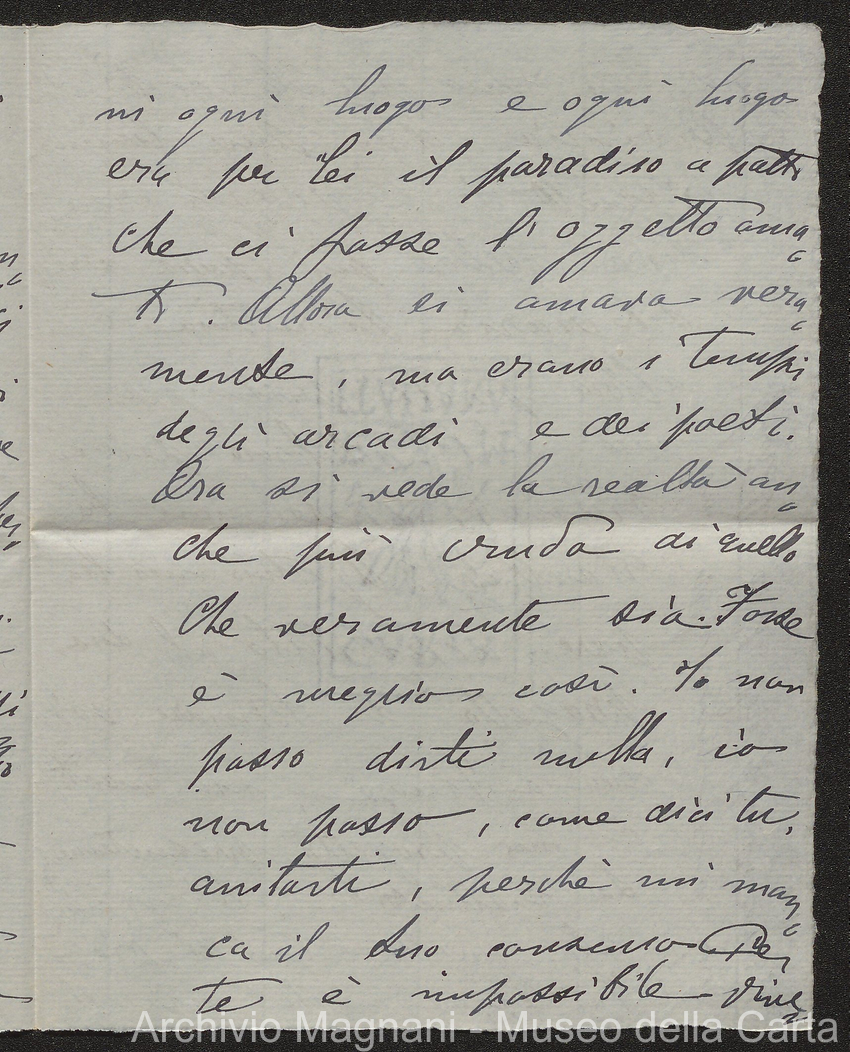 in ogni luogo e ogni luogo
era per Lei il paradiso a patto
che ci fosse l'oggetto ama
to. Allora si amava vera
mente, ma erano i tempi
degli arcadi e dei poeti.
Ora si vede la realtà an
che più cruda di quello
che veramente sia. Forse
è meglio così. Io non
posso dirti nulla, io
non posso, come dici tu,
aiutarti, perchè mi man
ca il tuo consenso. Per
te è impossibile vive
Archivio Magnani - Museo della Carta